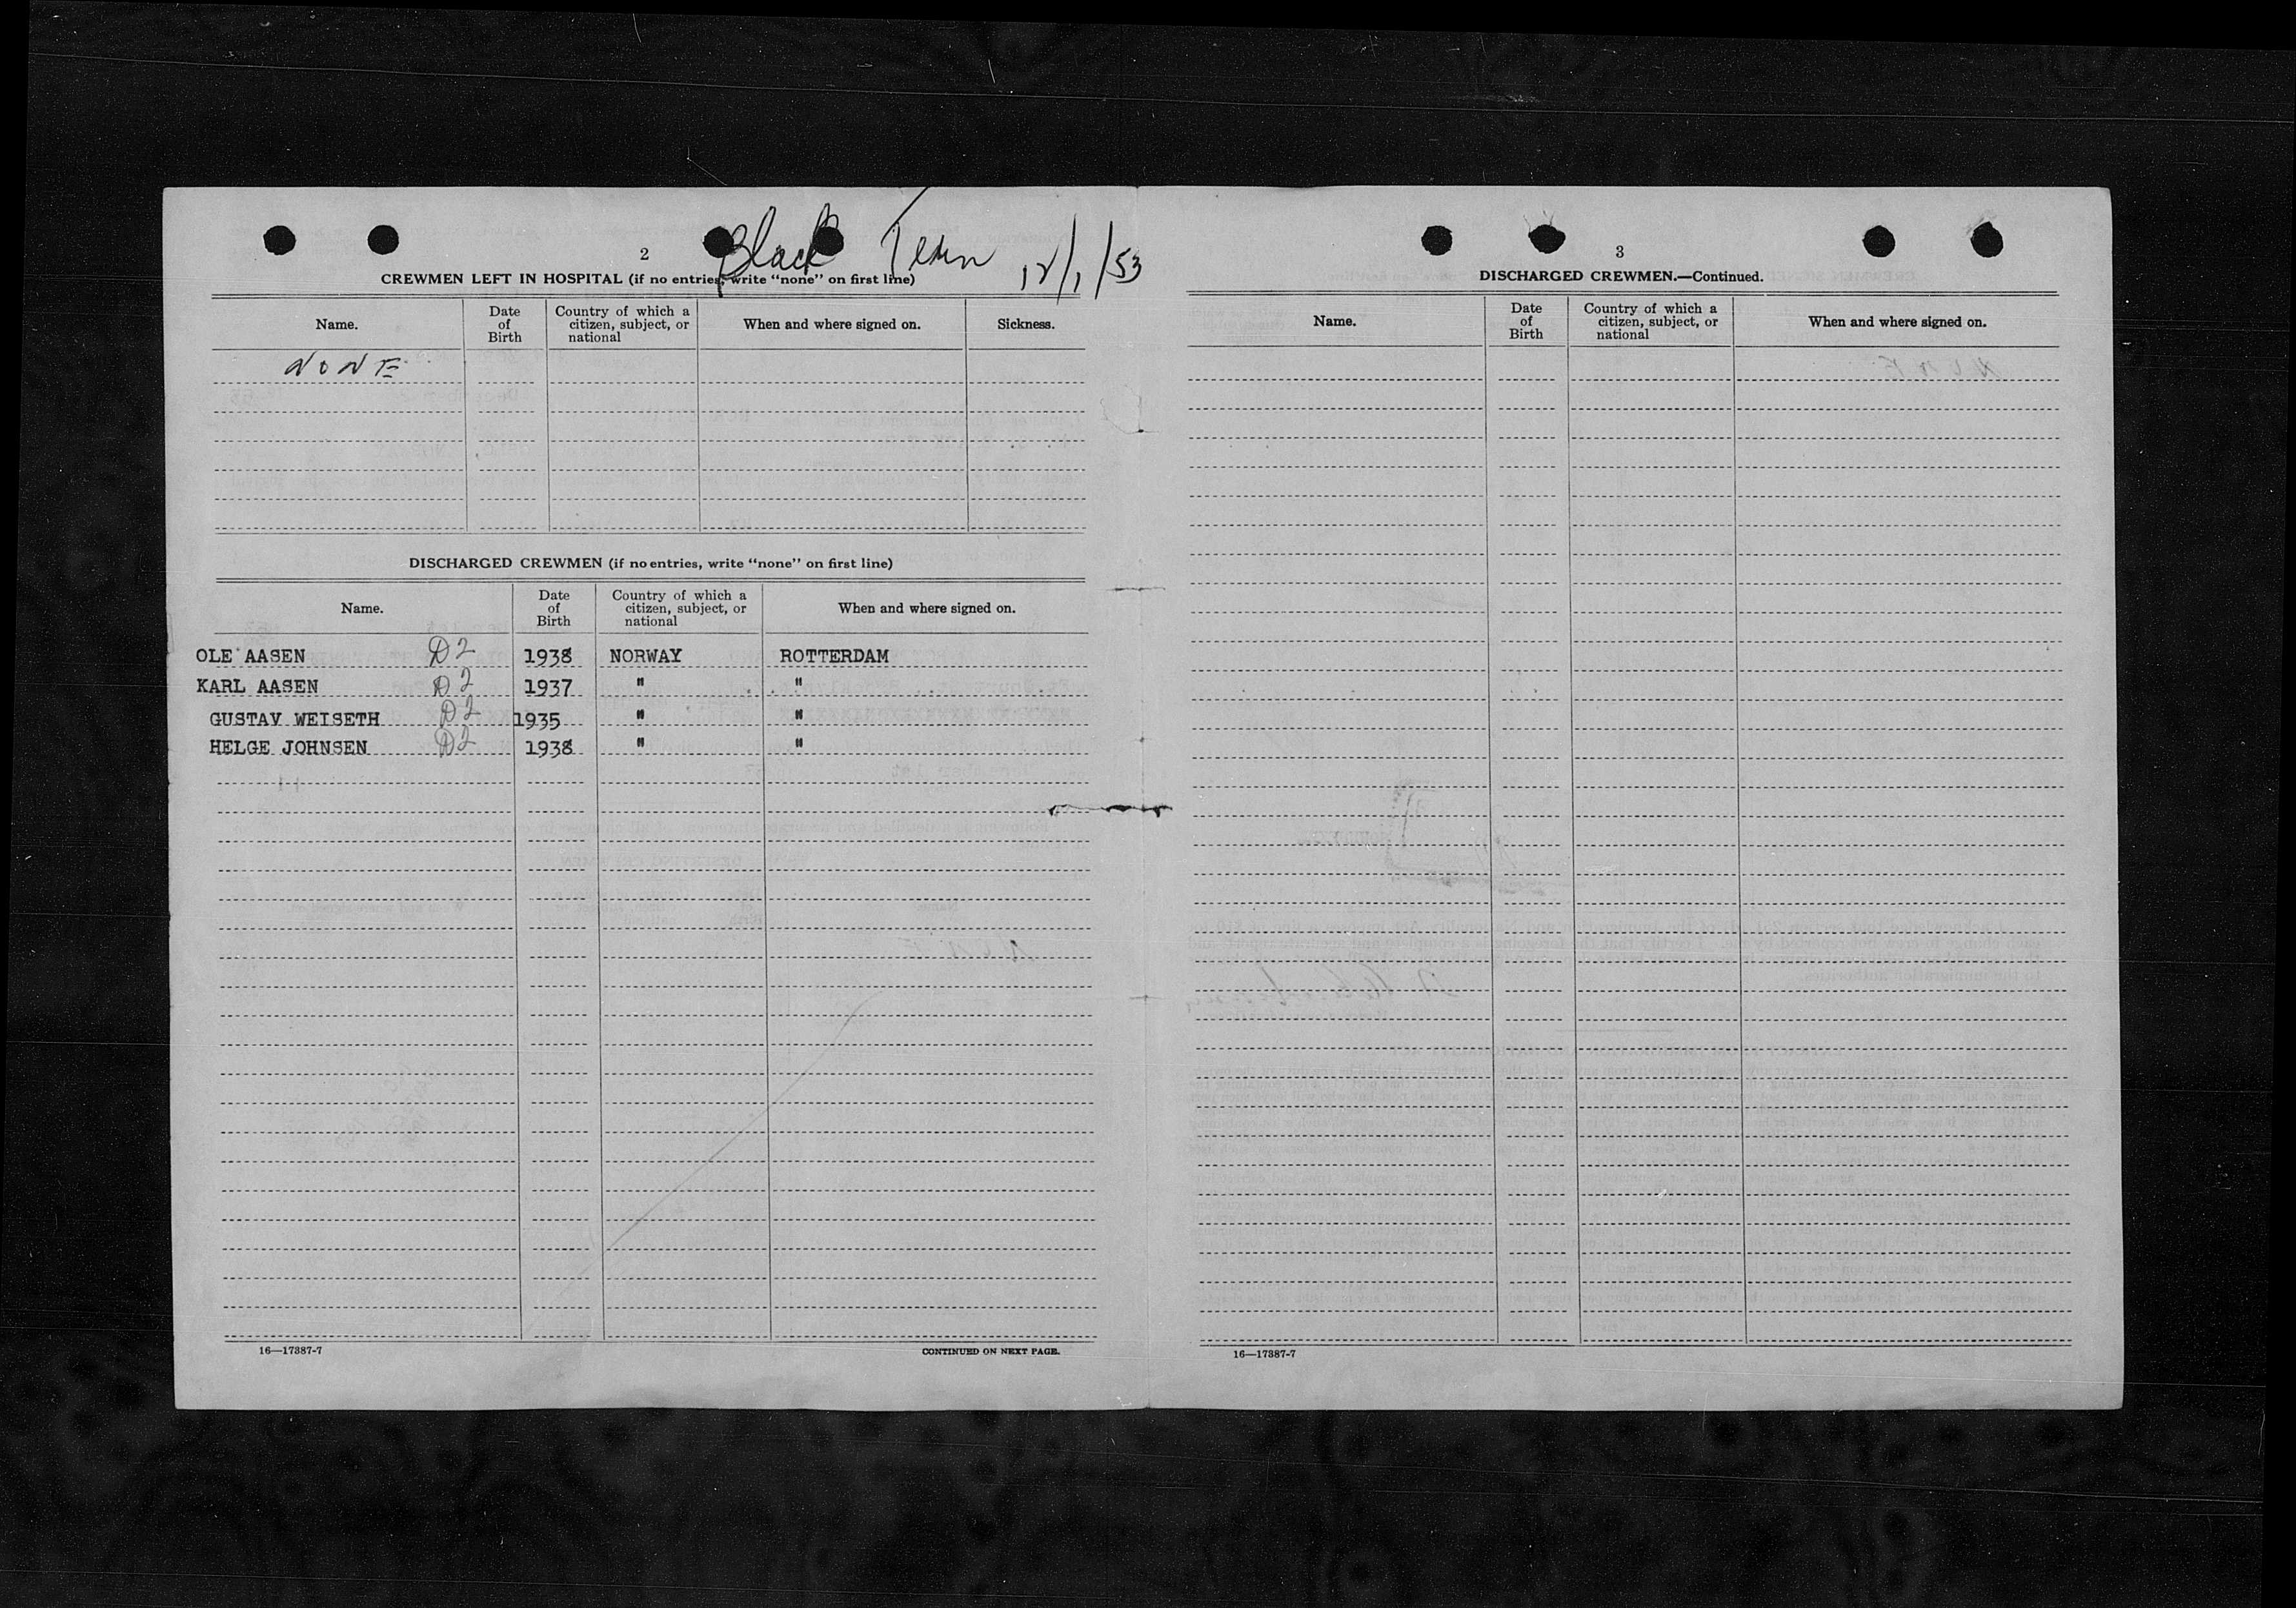 2
Black Tern 12/1/53
CREWMEN LEFT IN HOSPITAL (if no entries, write "none" on first line)
Name. Date of Birth Country of which a citizen, subject, or national When and where signed on. Sickness.
NONE
DISCHARGED CREWMEN (if no entries, write "none" on first line)
Name. Date of Birth Country of which a citizen, subject, or national When and where signed on.
OLE AASEN D2 1938 NORWAY ROTTERDAM
KARL AASEN D2 1937 " "
GUSTAV WEISETH D2 1935 " "
HELGE JOHNSEN D2 1938 " "
16—17387-7 CONTINUED ON NEXT PAGE.
3
DISCHARGED CREWMEN.—Continued.
Name. Date of Birth Country of which a citizen, subject, or national When and where signed on.
16—17387-7